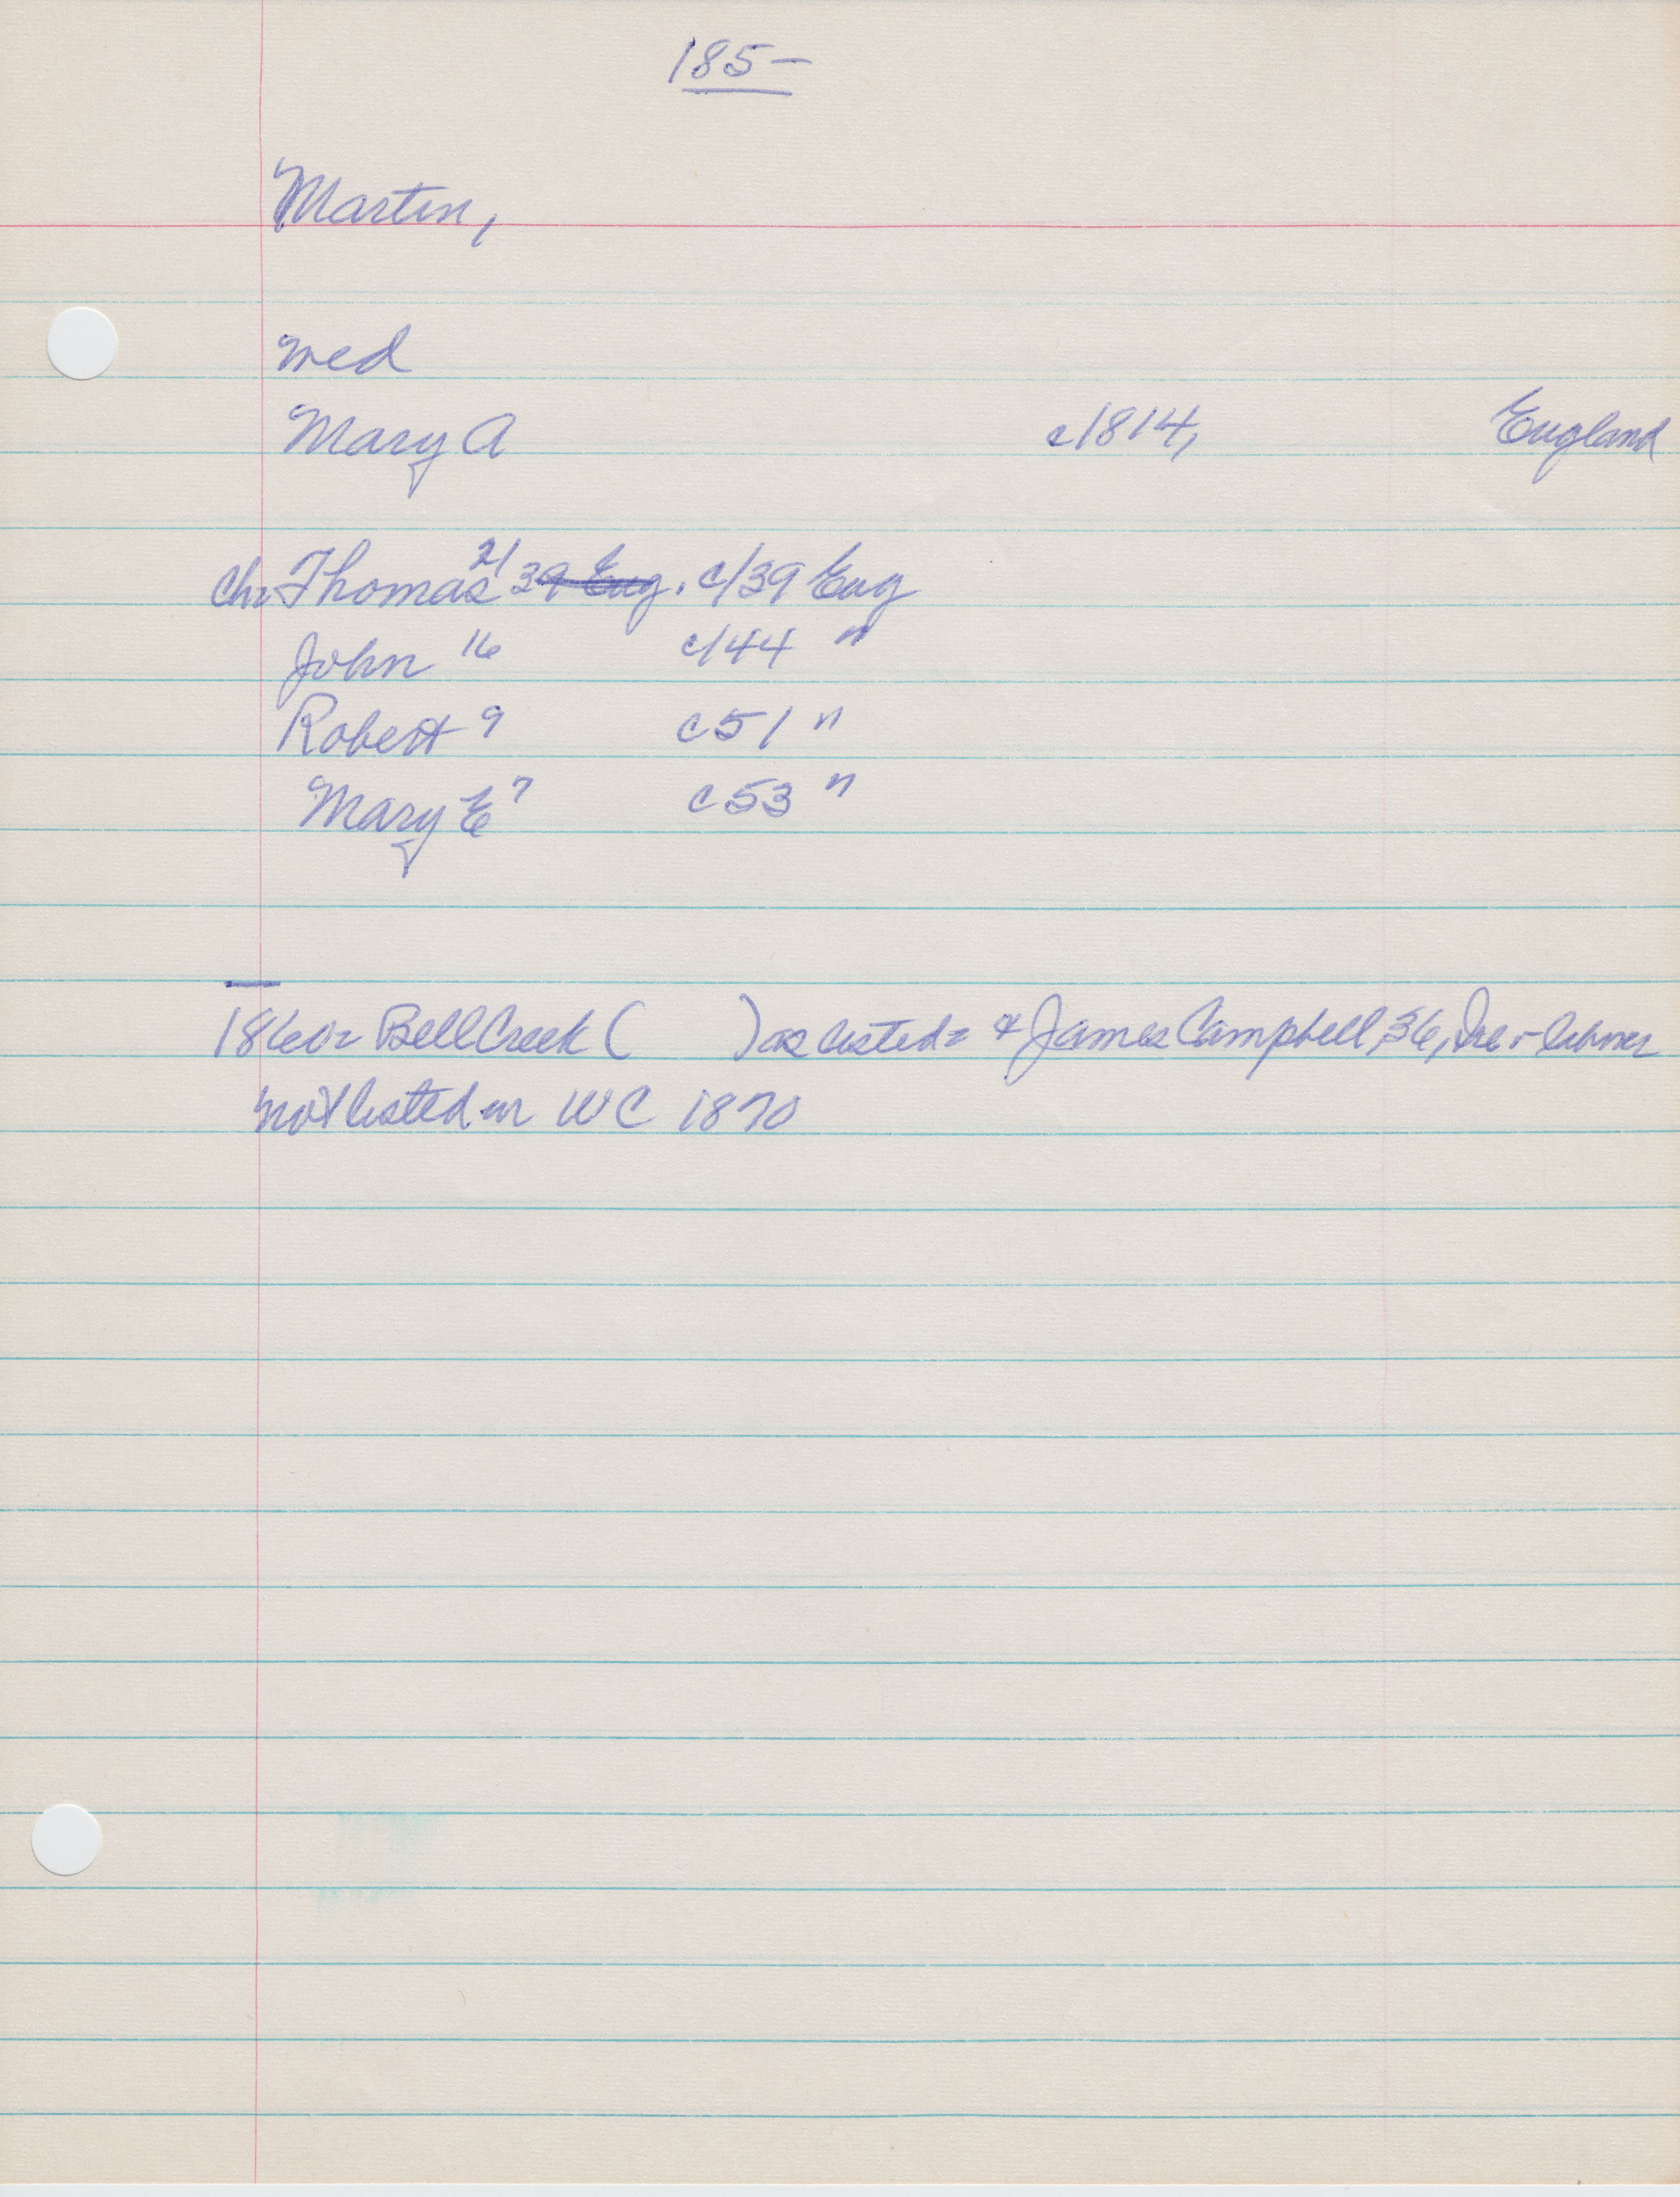 185-
Martin,
med
Mary A c1814, England
Chr Thomas 21 39 Eng. c/39 Eng
John 16 c/44 "
Robert 9 c51 "
Mary E 7 c53 "
1860= Bell Creek ( ) as listed= & James Campbell, 36, Ire - laborer
not listed in WC 1870